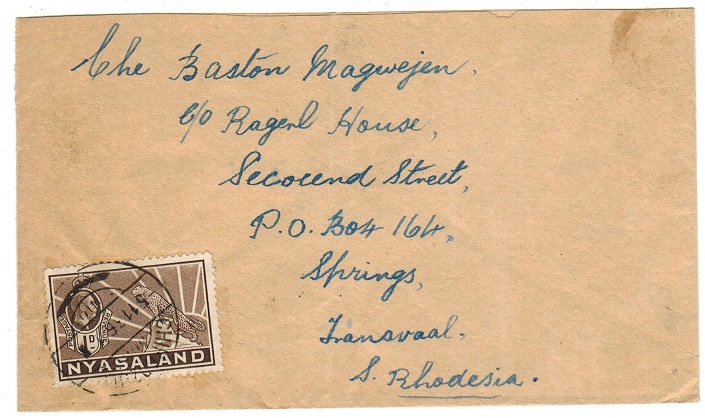 Che Baston Magwejen.
C/o Ragerl House,
Secorend Street,
P.O. Box 164,
Springs,
Transvaal.
S. Rhodesia.
1D
NYASALAND